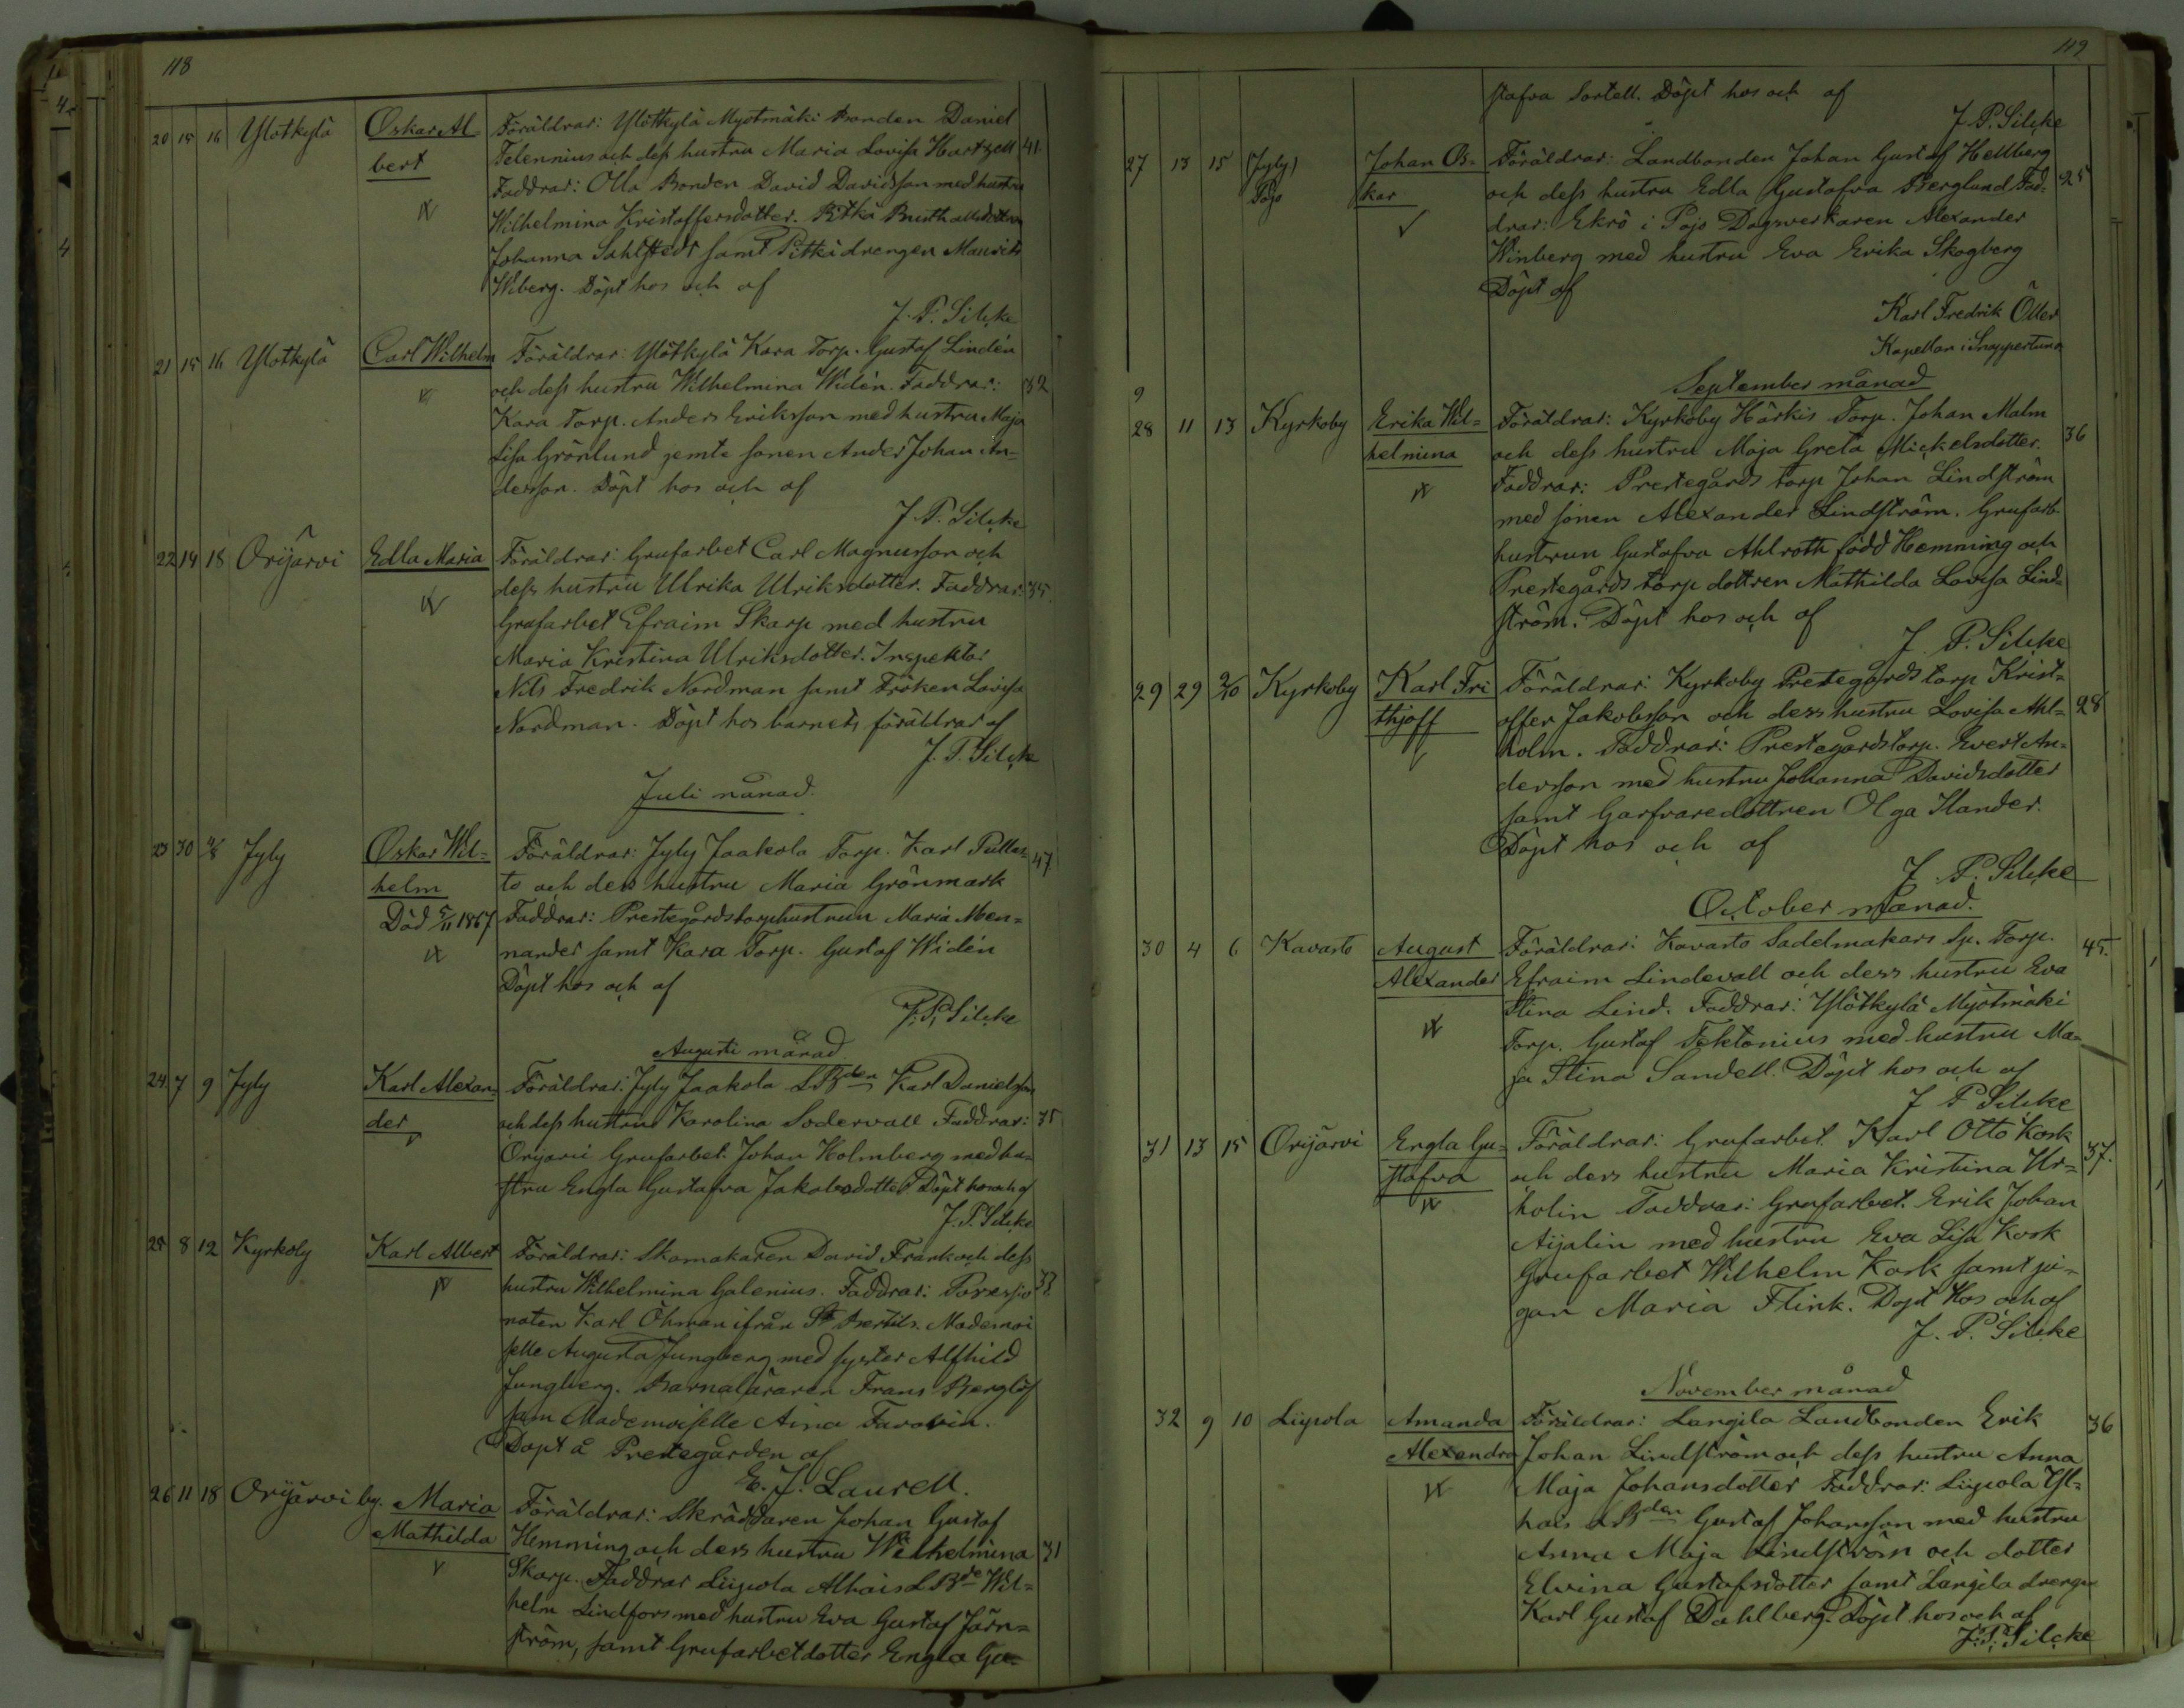 118
20 15 16 Ylötkylä Oskar Al= Föräldrar: Ylötkylä Myötmäki Bonden Daniel
bert Telennius och dess hustru Maria Lovisa Hartzell 41
Faddrar: Olla Bonden David Davidsson med hustru
Wilhelmina Kristoffersdotter.
Johanna Sahlstedt samt Pitkidrengen Maurits
Wiberg. Döpt hos och af
J. P. Silcke
21 15 16 Ylötkylä Carl Wilhelm Föräldrar: Ylötkylä Kara Torp. Gustaf Lindén
och dess hustru Wilhelmina Widén. Faddrar: 32
Kara Torp. Anders Eriksson med hustru Maja
Lisa Grönlund jemte sonen Anders Johan An=
dersson. Döpt hos och af
J. P. Silcke
22 14 18 Orijärvi Edla Maria Föräldrar: Grufarbet Carl Magnusson och
dess hustru Ulrika Ulriksdotter. Faddrar: 35.
Grufarbet Efraim Skarp med hustru
Maria Kristina Ulriksdotter. Inspektor
Nils Fredrik Nordman samt Fröken Lovisa
Nordman. Döpt hos barnets föräldrar af
J. P. Silcke
Juli månad.
23 30 Jyly Oskar Wil= Föräldrar: Jyly Jaakola Torp. Karl Pullas= 47
helm to och dess hustru Maria Grönmark
Död 5/11 1867 Faddrar: Prestegårdstorphustrun Maria Men=
nander samt Kara Torp. Gustaf Widén
Döpt hos och af
J. P. Silcke
Augusti månad
24 7 9 Jyly Karl Alexan= Föräldrar: Jyly Jaakola LBden Karl Danielsson
der och dess hustru Karolina Södervall Faddrar: 35
Orijärvi Grufarbet. Johan Holmberg med hu=
stru Engla Gustafva Jakobsdotter Döpt hos och af
J. P. Silcke
25 8 12 Kyrkoby Karl Albert Föräldrar: Skomakaren David Frank och dess
hustru Wilhelmina Galenius. Faddrar: Possessio 33
naten Karl Öhman ifrån St Bertils. Mademoi
selle Augusta Jungberg med syster Alfhild
Jungberg. Barnaläraren Frans Berglöf
sam Mademoiselle Aina
Döpt å Prestegården af
E. J. Laurell.
26 11 18 Orijärvi by. Maria Föräldrar: Skräddaren Johan Gustaf
Mathilda Hemming och dess hustru Wilhelmina 31
Skarp. Faddrar Liipola Alhais LBde Wil=
helm Lindfors med hustru Eva Gustaf Järn=
ström, samt Grufarbetdotter Engla Gu=
119
stafva Sortell. Döpt hos och af
J. P. Silcke
27 13 15 (Jyly) Johan Os= Föräldrar: Landbonden Johan Gustaf Hellberg
Pojo kar och dess hustru Edla Gustafva Berglund Fad= 25
drar: Ekrö i Pojo Dagsverkaren Alexander
Winberg med hustru Eva Erika Skogberg
Döpt af
Karl Fredrik Öller
Kapellan i Snappertuna
September månad
9
28 11 13 Kyrkoby Erika Wil= Föräldrar: Kyrkoby Härkis Torp. Johan Malm
helmina och dess hustru Maja Greta Mickelsdotter. 36
Faddrar: Prestegårds torp Johan Lindström
med sonen Alexander Lindström. Grufarb.
hustrun Gustafva Ahlroth född Hemming och
Prestegårds torp dottren Mathilda Lovisa Lind=
ström. Döpt hos och af
J. P. Silcke
29 29 2/10 Kyrkoby Karl Fri Föräldrar: Kyrkoby Prestegårds torp Krist=
thjoff offer Jakobsson och dess hustru Lovisa Ahl= 28
holm. Faddrar: Prestegårdstorp. Evert An=
dersson med hustru Johanna Davidsdotter
samt Garfvaredottren Olga Ilander.
Döpt hos och af
J. P. Silcke
October månad.
30 4 6 Kavasto August Föräldrar: Kavasto Sadelmakars Sp. Torp. 45.
Alexander Efraim Lindevall och dess hustru Eva
Stina Lind. Faddrar: Ylötkylä Myötmäki
Torp. Gustaf Tektonius med hustru Ma=
ja Stina Sandell. Döpt hos och af
J P Silcke
31 13 15 Orijärvi Engla Gu= Föräldrar: Grufarbet. Karl Otto Kosk
stafva och dess hustru Maria Kristina Ur= 37.
holin Faddrar: Grufarbet. Erik Johan
Aijalin med hustru Eva Lisa Kosk
Grufarbet Wilhelm Kosk samt pi=
gan Maria Flink. Döpt hos och af
J. P. Silcke
November månad
32 9 10 Liipola Amanda Föräldrar: Langila Landbonden Erik 36
Alexandra Johan Lindström och dess hustru Anna
Maja Johansdotter Faddrar: Liipola Yl=
hais LBden Gustaf Johansson med hustru
Anna Maja Lindström och dotter
Elvina Gustafsdotter samt Langila drengen
Karl Gustaf Dahlberg. Döpt hos och af
J. P. Silcke